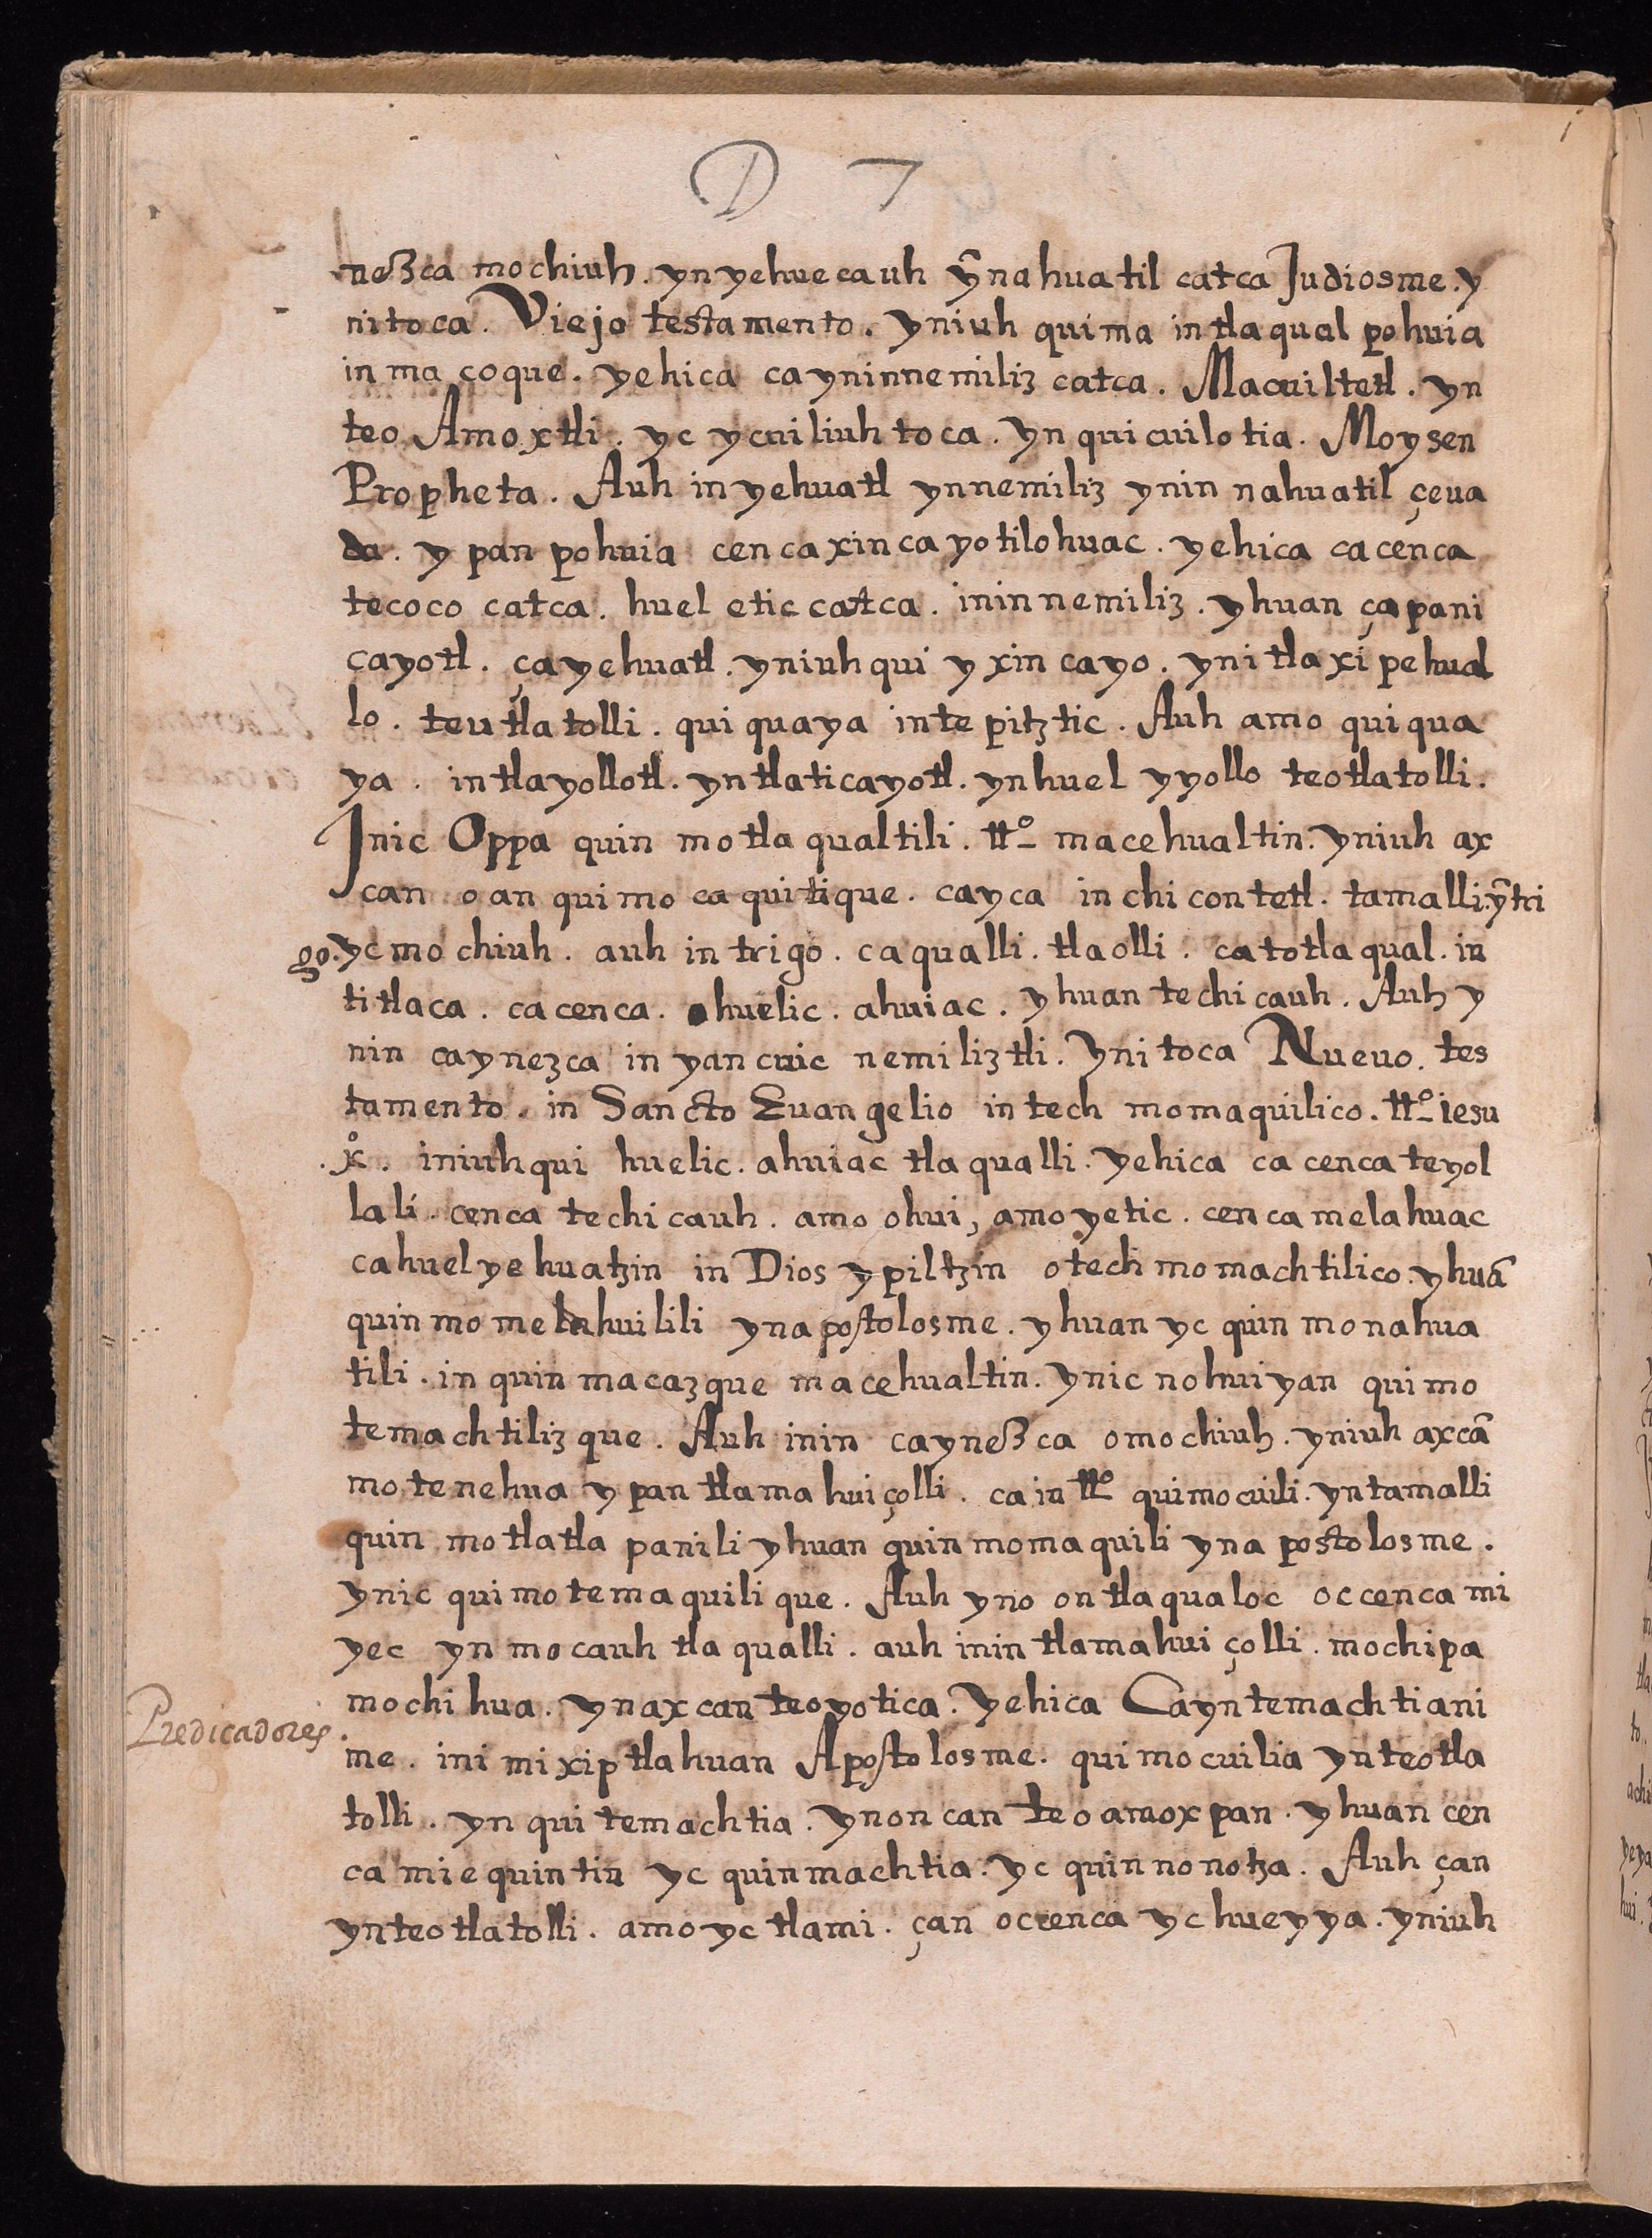 D 7
neßca mochiuh. yn yehuecauh ỹnahuatil catca Judiosme. y
nitoca. Viejo testamento. yniuh quima intlaqual pohuia
in ma çoque. yehica cayninnemiliz catca. Macuiltetl. yn
teo Amoxtli. yc ycuiliuhtoca. yn quicuilotia. Moysen
Propheta. Auh inyehuatl ynnemiliz ynin nahuatil çeua
da. ypan pohuia cencaxincayotilohuac. yehica cacenca
tecoco catca. huel etic catca. ininnemiliz. yhuan çapani
cayotl. çayehuatl. yniuhqui yxincayo. ynitlaxipehual
lo. teutlatolli. quiquaya intepitztic. Auh amo quiqua
ya. intlayollotl. yntlaticayotl. ynhuel yyollo teotlatolli.
Jnic Oppa quinmotlaqualtili. tt.º macehualtin. yniuh ax
can oanquimocaquitique. cayca inchicontetl. tamalli. ỹtri
go. yc mochiuh. auh in trigo. caqualli. tlaolli. catotlaqual. in
titlaca. cacenca. huelic. ahuiac. yhuan techicauh. Auh y
nin caynezca inyancuic nemiliztli. Ynitoca Nueuo. tes
tamento. in Sancto Euangelio intech momaquilico. tt.º iesu
.xº. iniuhqui huelic. ahuiac tlaqualli. yehica ca cenca teyol
lali. cenca techicauh. amo ohui, amo yetic. cencamelahuac
cahuelyehuatzin in Dios ypiltzin otechmomachtilico. yhuã
quinmomelahuilili ynapostolosme. yhuan yc quinmonahua
tili. in quinmacazque macehualtin. ynic nohuiyan quimo
temachtilizque. Auh inin cayneßca omochiuh. yniuh axcã
motenehua ypan tlamahuiçolli. cain tt.º quimocuili. yntamalli
quinmotlatlapanili yhuan quinmomaquili ynapostolosme.
ynic quimotemaquilique. Auh yno ontlaqualoc occenca mi
yec yn mocauh tlaqualli. auh inin tlamahuiçolli. mochipa
mochihua. ynaxcan teoyotica. Yehica Cayntemachtiani
Predicadores.
me. inimixiptlahuan Apostolosme. quimocuilia ynteotla
tolli. yn quitemachtia. ynoncan teoamoxpan. yhuan cen
ca miequintin yc quinmachtia. yc quinnonotza. Auh çan
ynteotlatolli. amo yc tlami. çan occenca yc hueyya. yniuh